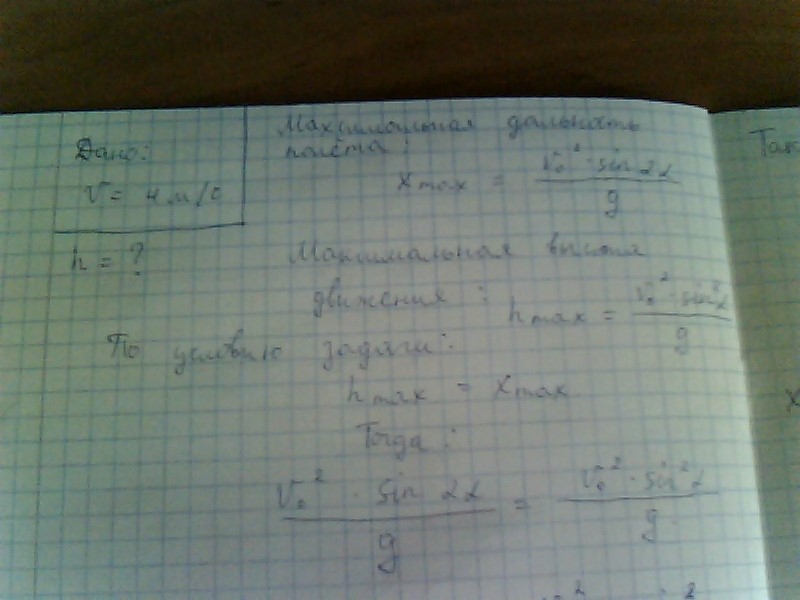 Дано:
V = 4 м/с
h = ?
Максимальная дальность
полёта:
x max = V₀² · sin 2α / g
Максимальная высота
движения: h max = V₀² · sin²α / g
По условию задачи:
h max = x max
Тогда:
V₀² · sin 2α / g = V₀² · sin²α / g
Так
x